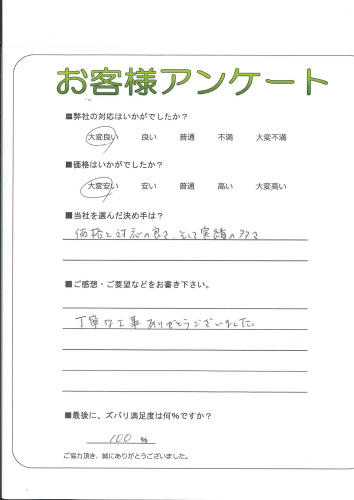 お客様アンケート
■弊社の対応はいかがでしたか？
大変良い 良い 普通 不満 大変不満
■価格はいかがでしたか？
大変安い 安い 普通 高い 大変高い
■当社を選んだ決め手は？
価格と対応の良さ、そして実績の多さ
■ご感想・ご要望などをお書き下さい。
丁寧な工事ありがとうございました。
■最後に、ズバリ満足度は何％ですか？
100 ％
ご協力頂き、誠にありがとうございました。